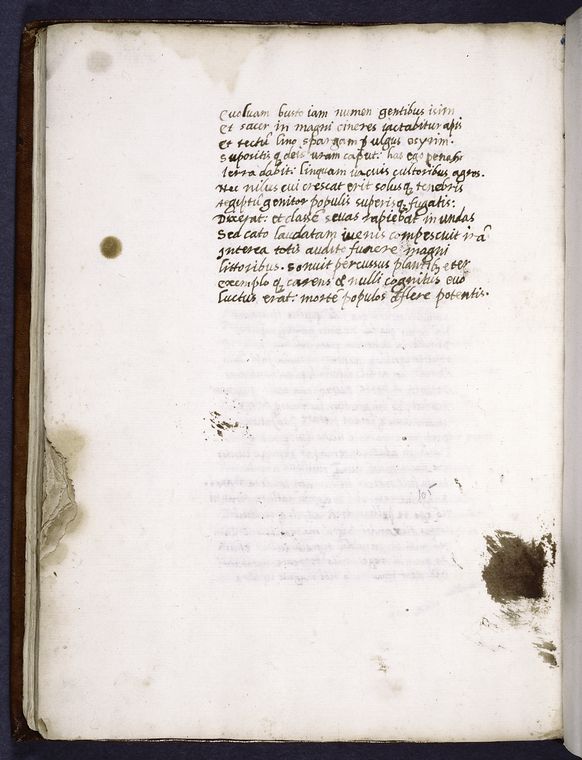 Euoluam busto iam numen gentibus isim
Et sacer in magni cineres iactabitur apis
Et tectũ lino spargam ꝑ uulgus osyrim.
Supositisq; deis uram caput: has ego penas
Terra dabit: linquam uacuis cultoribus agros.
Nec nilus cui crescat erit solusq; tenebris
Aegiptũ genitor populis superisq; fugatis:
Dixerat: et classẽ seuas rapiebat in undas
Sed cato laudatam iuenis compescuit irã
Interea totis audito funere magni
littoribus. sonuit percussus planctib; eter
exemploq; carens & nulli cognitus euo
luctus erat: mortẽ populos deflere potentis.
105